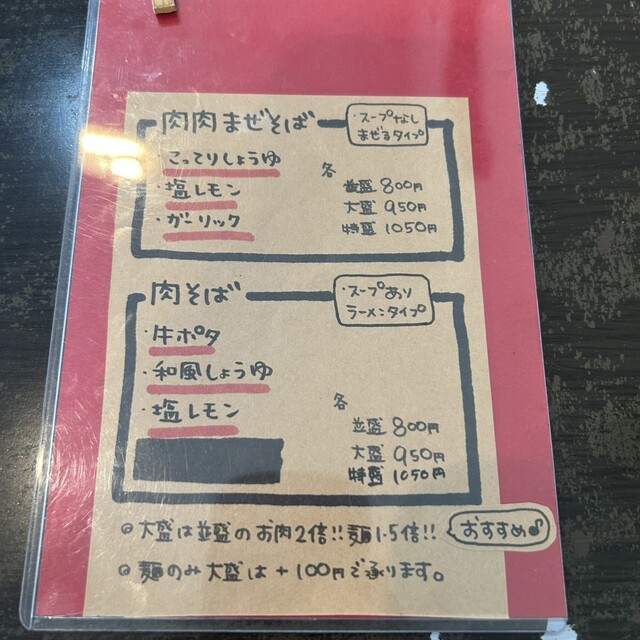 肉肉まぜそば
・スープなし
まぜるタイプ
・こってりしょうゆ
・塩レモン
・ガーリック
各
並盛 800円
大盛 950円
特盛 1050円
肉そば
・スープあり
ラーメンタイプ
・牛ポタ
・和風しょうゆ
・塩レモン
各
並盛 800円
大盛 950円
特盛 1050円
◎大盛は並盛のお肉2倍!!麺1.5倍!! おすすめ♪
◎麺のみ大盛は+100円で承ります。